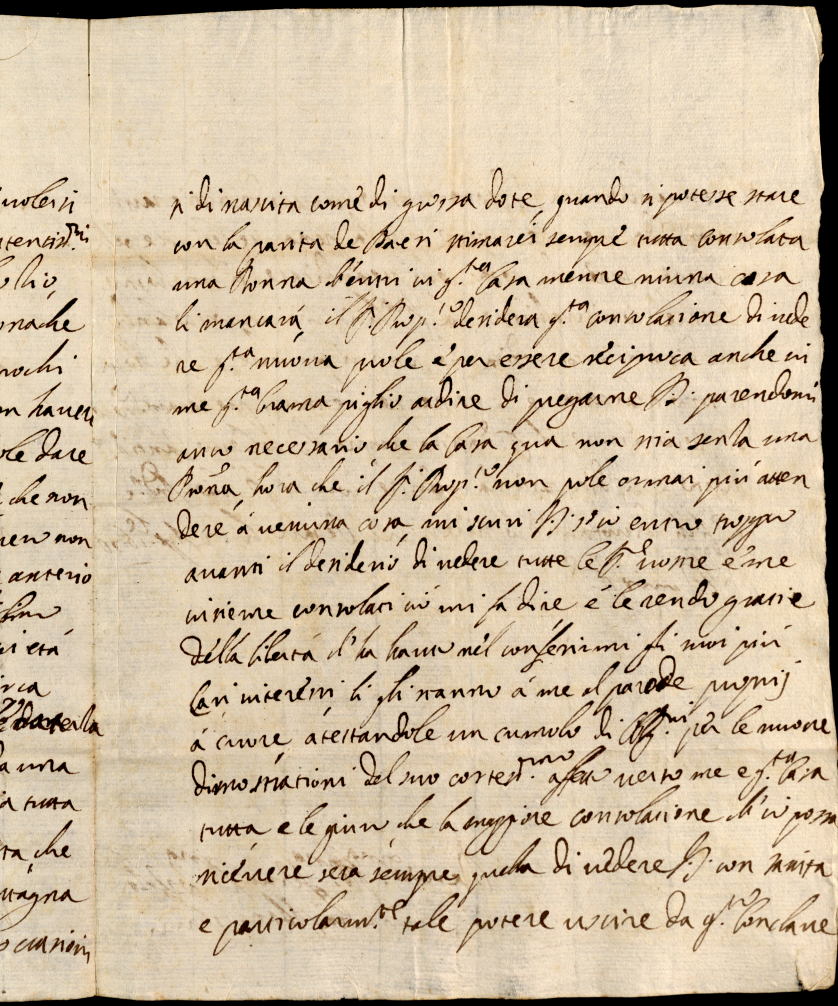 volersi
li mancarà
ochi
haver
ole dare
che non
non
anterio
età
a una
a tutta
ta che
tagna
si di nascita come di grossa dote, quando si potesse stare
con la parità de Paesi stimarei sempre tutta consolata
una Donna ch'entri in q.ta Casa mentre niuna cosa
li mancarà, il S. Prop.o desidera q.ta consolatione di vede
re q.ta nuova prole e per essere reciproca anche in
me q.ta brama piglio ardire di pregarne V.S. parendomi
anco necessario che la Casa qua non stia senza una
Donna, hora che il S. Prop.o non pole ormai più atten
dere à veruna cosa mi scusi V.S. s'io entro troppo
avanti il desiderio di vedere tutte le nostre è me
insieme consolati iò mi fa dire è le rendo gratie
della libertà ch'ha havuto nel conferirmi li suoi più
Cari interessi li gli stanno à me al pari de proprij
à cuore, atestandole un cumulo di per le nuove
dimostrationi del suo cortes.mo afetto verso me e q.ta Casa
tutta e le giuro che la maggiore consolatione ch'io possa
ricevere serà sempre quella di vedere V.S. con sanità
e particolarm.te tale potere uscire da q.to Conclave